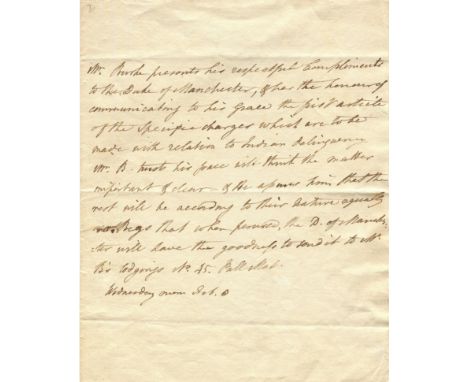 Mr. Burke presents his respectful Compliments
to the Duke of Manchester, & has the honour of
communicating to his Grace the first article
of the Specific charges which are to be
made with relation to Indian delinquency
Mr. B. trusts his Grace will think the matter
important & clear & He assures him that the
rest will be according to their Nature equally
so. Begs that when perused, the D. of Manches
ter will have the goodness to send it to Mr.
B's lodgings No. 45. Pall Mall.
Wednesday morn Feb.